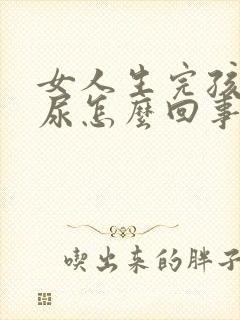 女人生完孩
尿怎麼回事
喫出来的胖子